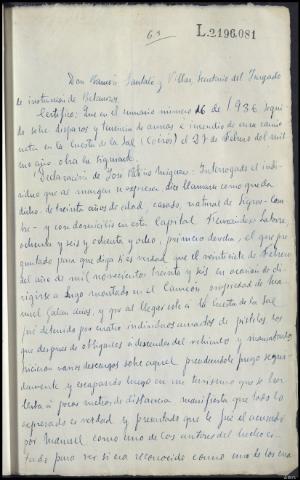 63
L.2196.081
Don Ramón Santaló y Villar, Secretario del Juzgado
de instrucción de Betanzos.
Certifico: Que en el sumario número 16 de 1936 segui
do sobre disparos y tenencia de armas e incendio de una camio
neta en la Cuesta de la Sal (Coirós) el 27 de Febrero del mis
mo año obra lo siguiente
Declaración de José Patiño Míguez: Interrogado el indi
viduo que al margen se expresa dijo llamarse como queda
dicho, de treinta años de edad, casado, natural de
y con domicilio en esta Capital Fernández Latorre
ochenta y seis y ochenta y ocho, primero derecha, el que pre
guntado para que diga si es verdad que el veintisiete de Febrero
del año de mil novecientos treinta y seis en ocasión de di
rigirse a Lugo montado en el Camión propiedad de Ma
nuel y que al llegar este a la Cuesta de la Sal
fué detenido por cuatro individuos armados de pistolas los
que después de obligarles a descender del vehículo y
hicieron varios descargos sobre aquel prendiéndole fuego segui
damente y escapando luego en un turismo que se hal
laba a pocos metros de distancia manifiesta que todo lo
expresado es verdad y preguntado que le fué el acusado
por Manuel como uno de los autores del hecho ci
tado para ver si era reconocido como uno de los